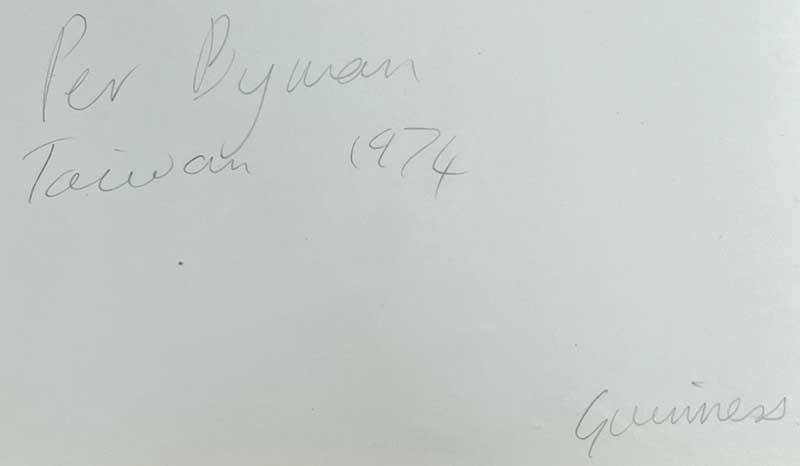 Per Byman
Taiwan 1974
Guinness